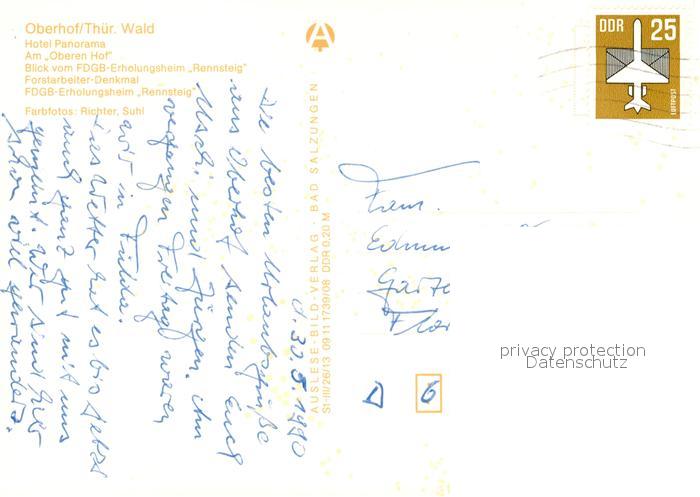 Oberhof/Thür. Wald
Hotel Panorama
Am „Oberen Hof"
Blick vom FDGB-Erholungsheim „Rennsteig"
Forstarbeiter-Denkmal
FDGB-Erholungsheim „Rennsteig"
Farbfotos: Richter, Suhl
d. 30.5.1990
Die besten Urlaubsgrüße
aus Oberhof senden Euch
Uschi und Jürgen. Am
vergangen Freitag waren
wir in Fulda.
Das Wetter hat es bis jetzt
auch ganz gut mit uns
gemeint. Wir sind hier
schon viel gewandert.
AUSLESE-BILD-VERLAG · BAD SALZUNGEN
S1-III/26/13 09 11 1739/08 DDR 0,20 M
DDR 25
LUFTPOST
Fam.
D 6
privacy protection
Datenschutz